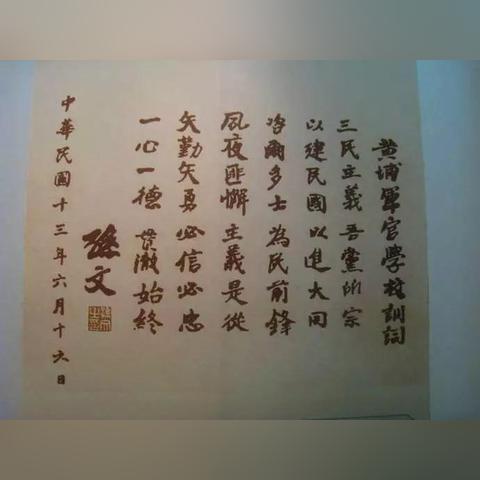 黄埔軍官學校訓詞
三民主義吾黨所宗
以建民國以進大同
咨爾多士為民前鋒
夙夜匪懈主義是從
矢勤矢勇必信必忠
一心一德貫澈始終
孫文
中華民國十三年六月十六日